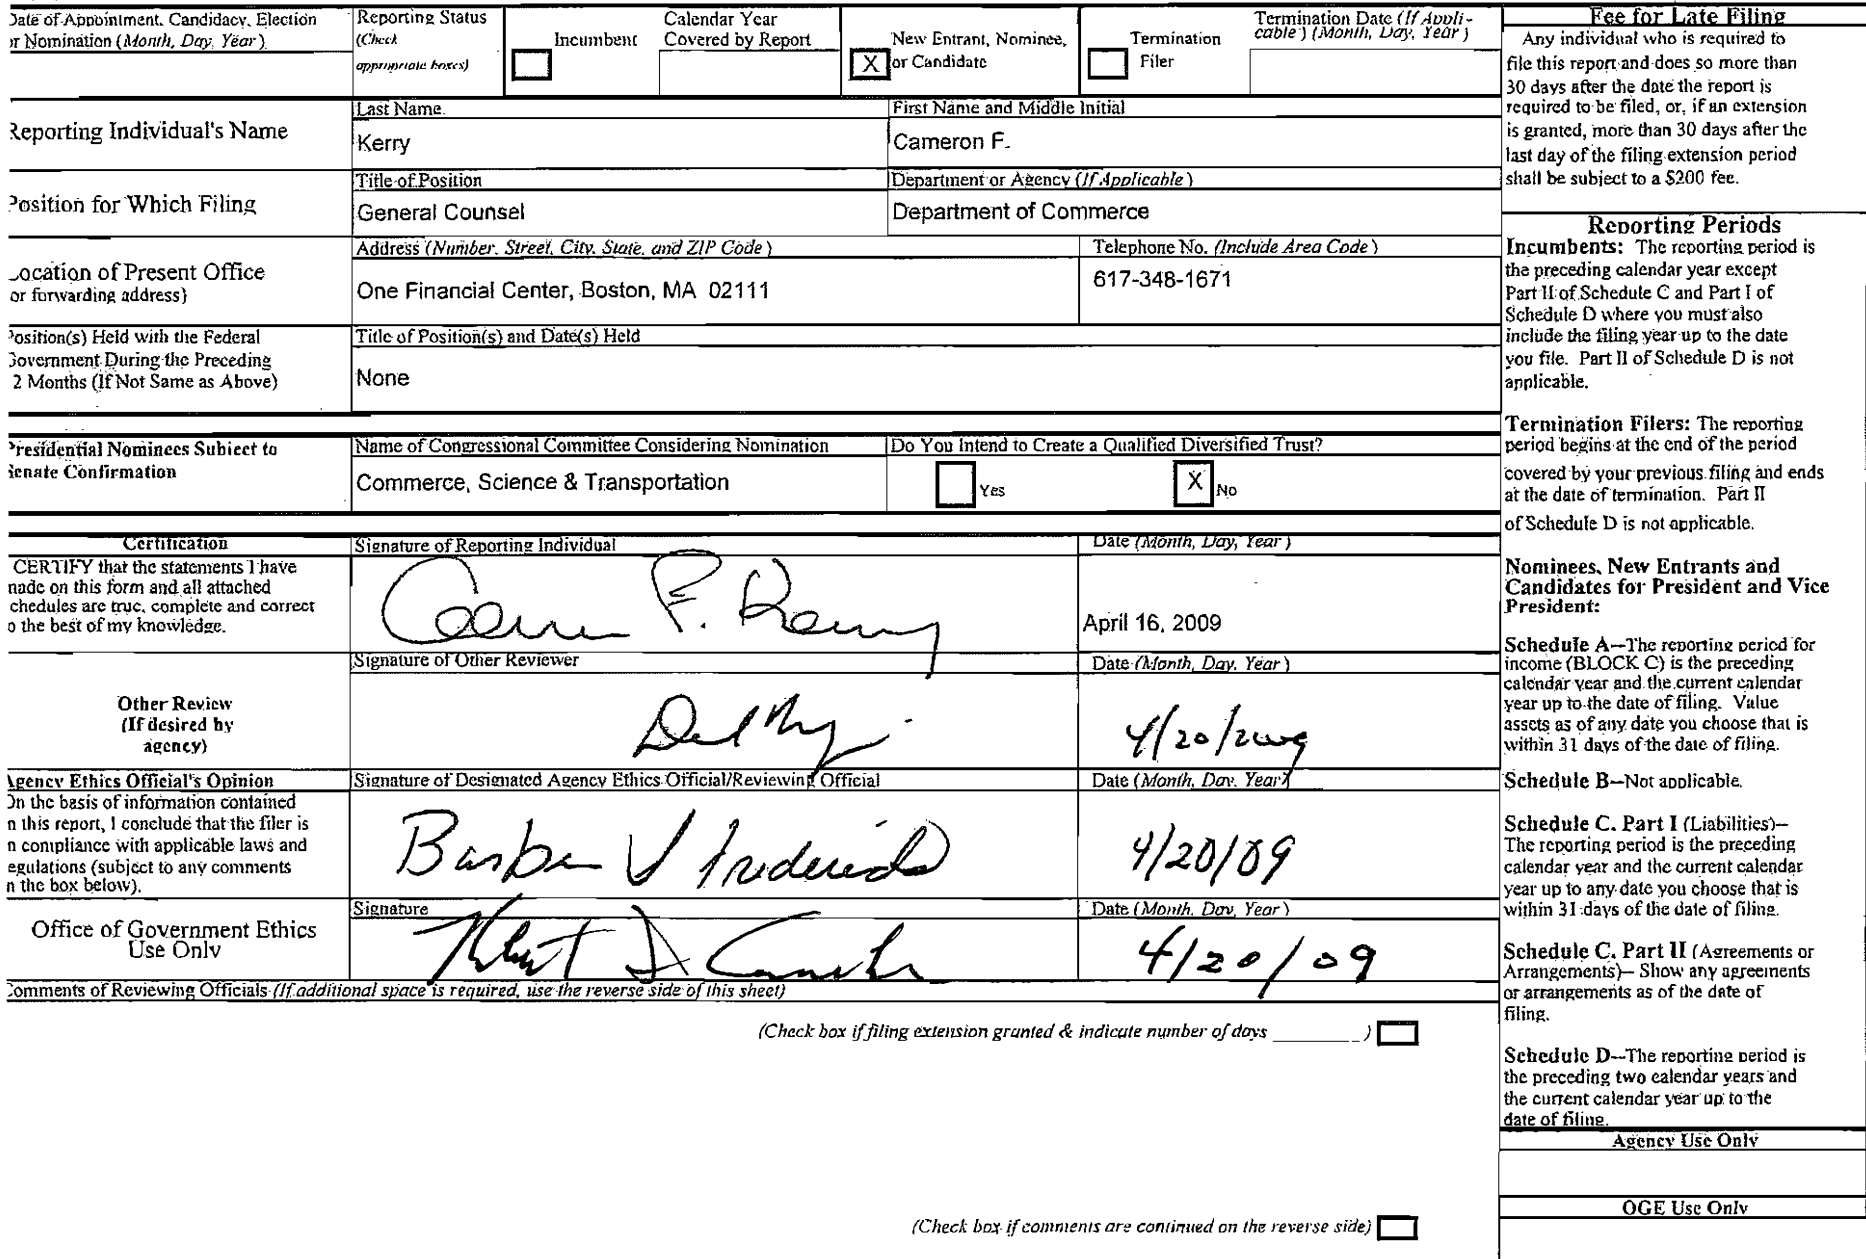 Date of Appointment, Candidacy, Election
or Nomination (Month, Day, Year)
Reporting Status
(Check
appropriate boxes)
Incumbent
Calendar Year
Covered by Report
X
New Entrant, Nominee,
or Candidate
Termination
Filer
Termination Date (If Appli-
cable) (Month, Day, Year)
Reporting Individual's Name
Last Name
First Name and Middle Initial
Kerry
Cameron F.
Position for Which Filing
Title of Position
Department or Agency (If Applicable)
General Counsel
Department of Commerce
Location of Present Office
or forwarding address)
Address (Number, Street, City, State, and ZIP Code)
Telephone No. (Include Area Code)
One Financial Center, Boston, MA 02111
617-348-1671
Position(s) Held with the Federal
Government During the Preceding
2 Months (If Not Same as Above)
Title of Position(s) and Date(s) Held
None
Presidential Nominees Subject to
Senate Confirmation
Name of Congressional Committee Considering Nomination
Do You Intend to Create a Qualified Diversified Trust?
Commerce, Science & Transportation
Yes
X
No
Certification
Signature of Reporting Individual
Date (Month, Day, Year)
CERTIFY that the statements I have
made on this form and all attached
schedules are true, complete and correct
to the best of my knowledge.
F. Kerry
April 16, 2009
Signature of Other Reviewer
Date (Month, Day, Year)
Other Review
(If desired by
agency)
4/20/2009
Agency Ethics Official's Opinion
Signature of Designated Agency Ethics Official/Reviewing Official
Date (Month, Day, Year)
On the basis of information contained
in this report, I conclude that the filer is
in compliance with applicable laws and
regulations (subject to any comments
in the box below).
4/20/09
Office of Government Ethics
Use Only
Signature
Date (Month, Day, Year)
4/20/09
Comments of Reviewing Officials (If additional space is required, use the reverse side of this sheet)
(Check box if filing extension granted & indicate number of days ________ )
(Check box if comments are continued on the reverse side)
Fee for Late Filing
Any individual who is required to
file this report and does so more than
30 days after the date the report is
required to be filed, or, if an extension
is granted, more than 30 days after the
last day of the filing extension period
shall be subject to a $200 fee.
Reporting Periods
Incumbents: The reporting period is
the preceding calendar year except
Part II of Schedule C and Part I of
Schedule D where you must also
include the filing year up to the date
you file. Part II of Schedule D is not
applicable.
Termination Filers: The reporting
period begins at the end of the period
covered by your previous filing and ends
at the date of termination. Part II
of Schedule D is not applicable.
Nominees, New Entrants and
Candidates for President and Vice
President:
Schedule A--The reporting period for
income (BLOCK C) is the preceding
calendar year and the current calendar
year up to the date of filing. Value
assets as of any date you choose that is
within 31 days of the date of filing.
Schedule B--Not applicable.
Schedule C, Part I (Liabilities)--
The reporting period is the preceding
calendar year and the current calendar
year up to any date you choose that is
within 31 days of the date of filing.
Schedule C, Part II (Agreements or
Arrangements)-- Show any agreements
or arrangements as of the date of
filing.
Schedule D--The reporting period is
the preceding two calendar years and
the current calendar year up to the
date of filing.
Agency Use Only
OGE Use Only